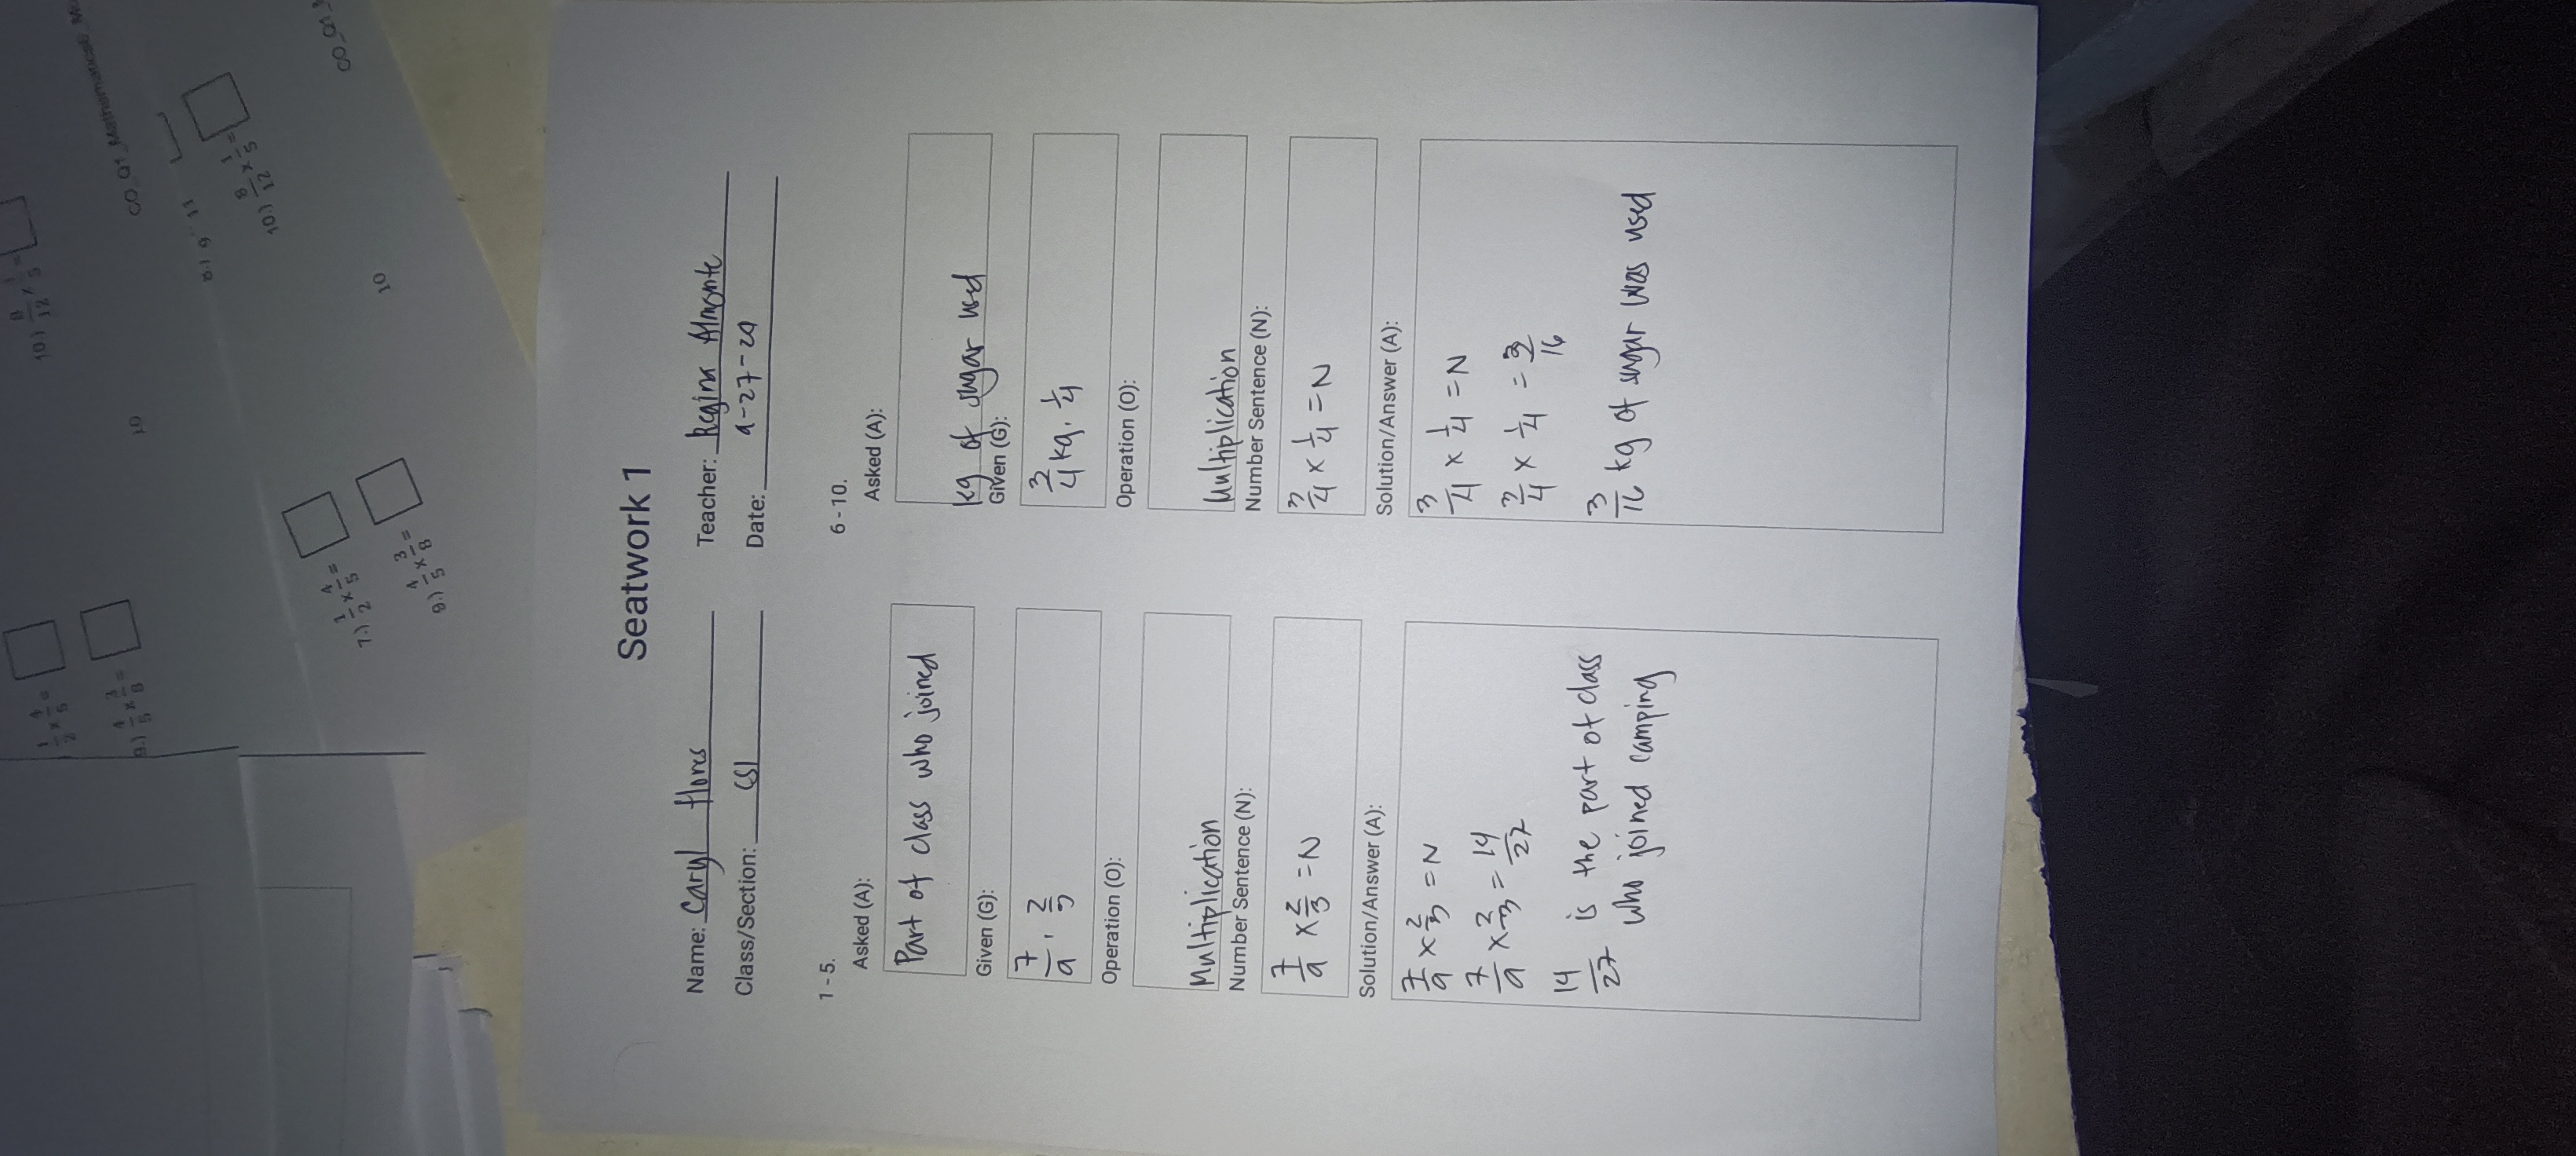 1/2 × 4/5 =
9.) 4/5 × 3/8 =
10.) 8/12 × 1/5 =
10
CO_Q1_Mathematics6_Mo
9 11
10.) 8/12 × 1/5 =
7.) 1/2 × 4/5 =
9.) 4/5 × 3/8 =
10
CO_Q1_
Seatwork 1
Name: Caryl Flores
Teacher: Regina Almonte
Class/Section: CS1
Date: 9-27-24
1 - 5.
Asked (A):
Part of class who joined
Given (G):
7/9 , 2/3
Operation (O):
Multiplication
Number Sentence (N):
7/9 × 2/3 = N
Solution/Answer (A):
7/9 × 2/3 = N
7/9 × 2/3 = 14/27
14/27 is the part of class
who joined camping
6 - 10.
Asked (A):
kg of sugar used
Given (G):
3/4 kg, 1/4
Operation (O):
Multiplication
Number Sentence (N):
3/4 × 1/4 = N
Solution/Answer (A):
3/4 × 1/4 = N
3/4 × 1/4 = 3/16
3/16 kg of sugar was used